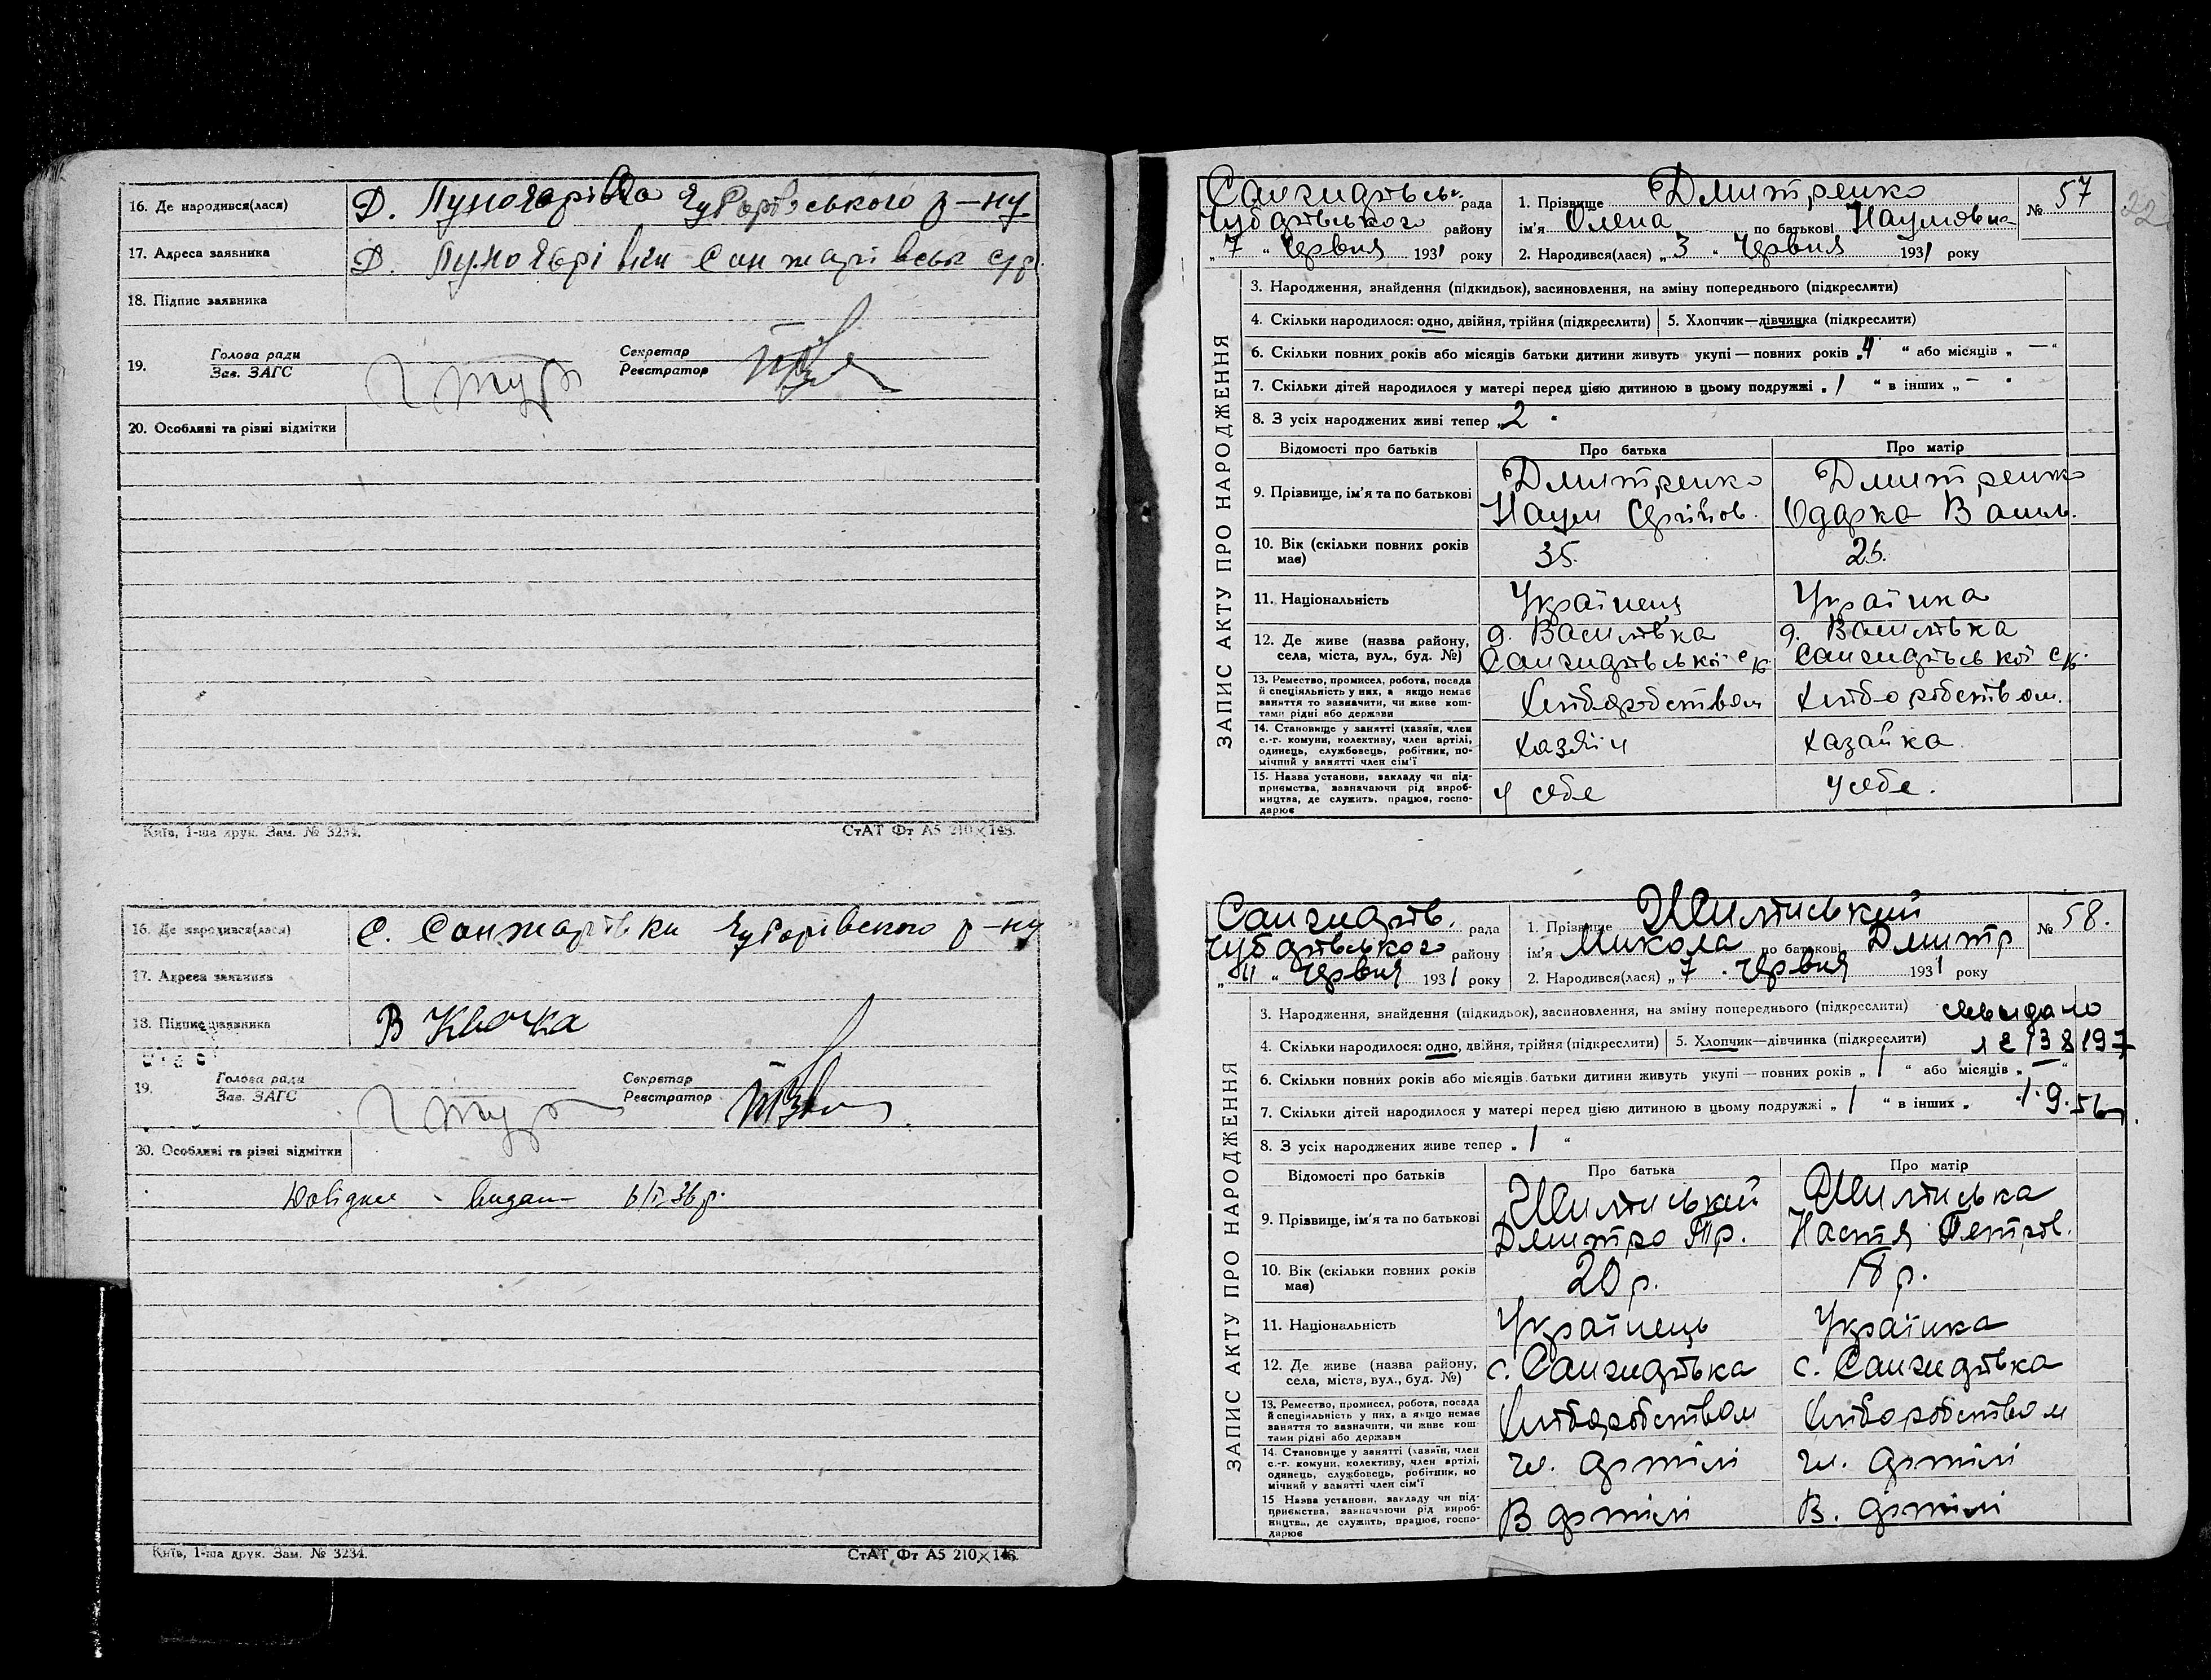 16. Де народився(лася) Д. Пуногарівка Чубарівського р-ну
17. Адреса заявника Д. Пуногарівки Санжарівськ с/р
18. Підпис заявника
19. Голова ради
Зав. ЗАГС
Секретар
Реєстратор
20. Особливі та різні відмітки
Київ, 1-ша друк. Зам. № 3234. СтАТ Фт А5 210×148.
16. Де народився(лася) С. Санжарівки Чубарівського р-ну
17. Адреса заявника
18. Підпис заявника В Квочка
19. Голова ради
Зав. ЗАГС
Секретар
Реєстратор
20. Особливі та різні відмітки
6/І 36 р.
Київ, 1-ша друк. Зам. № 3234. СтАТ Фт А5 210×148.
22
ЗАПИС АКТУ ПРО НАРОДЖЕННЯ
Санжарівськ рада
Чубарівського району
„7“ Червня 1931 року
1. Прізвище Дмитренко
ім'я Олена по батькові Наумовна
2. Народився(лася) „3“ Червня 1931 року
№ 57
3. Народження, знайдення (підкидьок), засиновлення, на зміну попереднього (підкреслити)
4. Скільки народилося: одно, двійня, трійня (підкреслити) 5. Хлопчик—дівчинка (підкреслити)
6. Скільки повних років або місяців батьки дитини живуть укупі — повних років „4“ або місяців „—“
7. Скільки дітей народилося у матері перед цією дитиною в цьому подружжі „1“ в інших „—“
8. З усіх народжених живі тепер „2“
Відомості про батьків Про батька Про матір
9. Прізвище, ім'я та по батькові Дмитренко Наум Сергійов. Дмитренко Одарка Васил.
10. Вік (скільки повних років має) 35. 25.
11. Національність Українець Українка
12. Де живе (назва району, села, міста, вул., буд. №) д. Василівка Санжарівської с/р д. Василівка Санжарівської с/р.
13. Ремество, промисел, робота, посада й спеціяльність у них, а якщо немає заняття то зазначити, чи живе коштами рідні або держави Хліборобством Хліборобством.
14. Становище у занятті (хазяїн, член с.-г. комуни, колективу, член артілі, одинець, службовець, робітник, помічний у занятті член сім'ї Хазяїн Хазяйка.
15. Назва установи, закладу чи підприємства, зазначаючи рід виробництва, де служить, працює, господарює у себе у себе.
ЗАПИС АКТУ ПРО НАРОДЖЕННЯ
Санжарів. рада
Чубарівського району
„11“ Червня 1931 року
1. Прізвище Шилінський
ім'я Микола по батькові Дмитр
2. Народився(лася) „7“ Червня 1931 року
№ 58.
3. Народження, знайдення (підкидьок), засиновлення, на зміну попереднього (підкреслити)
4. Скільки народилося: одно, двійня, трійня (підкреслити) 5. Хлопчик—дівчинка (підкреслити)
6. Скільки повних років або місяців батьки дитини живуть укупі — повних років „1“ або місяців „—“
7. Скільки дітей народилося у матері перед цією дитиною в цьому подружжі „1“ в інших „ 1.9.56
8. З усіх народжених живе тепер „1“
Відомості про батьків Про батька Про матір
9. Прізвище, ім'я та по батькові Шилінський Дмитро Тр. Шилінська Настя Петрів.
10. Вік (скільки повних років має) 20 р. 18 р.
11. Національність Українець Українка
12. Де живе (назва району, села, міста, вул., буд. №) с. Санжарівка с. Санжарівка
13. Ремество, промисел, робота, посада й спеціяльність у них, а якщо немає заняття то зазначити, чи живе коштами рідні або держави Хліборобством Хліборобством
14. Становище у занятті (хазяїн, член с.-г. комуни, колективу, член артілі, одинець, службовець, робітник, помічний у занятті член сім'ї чл. артілі чл. артілі
15 Назва установи, закладу чи підприємства, зазначаючи рід виробництва, де служить, працює, господарює В артілі В. артілі